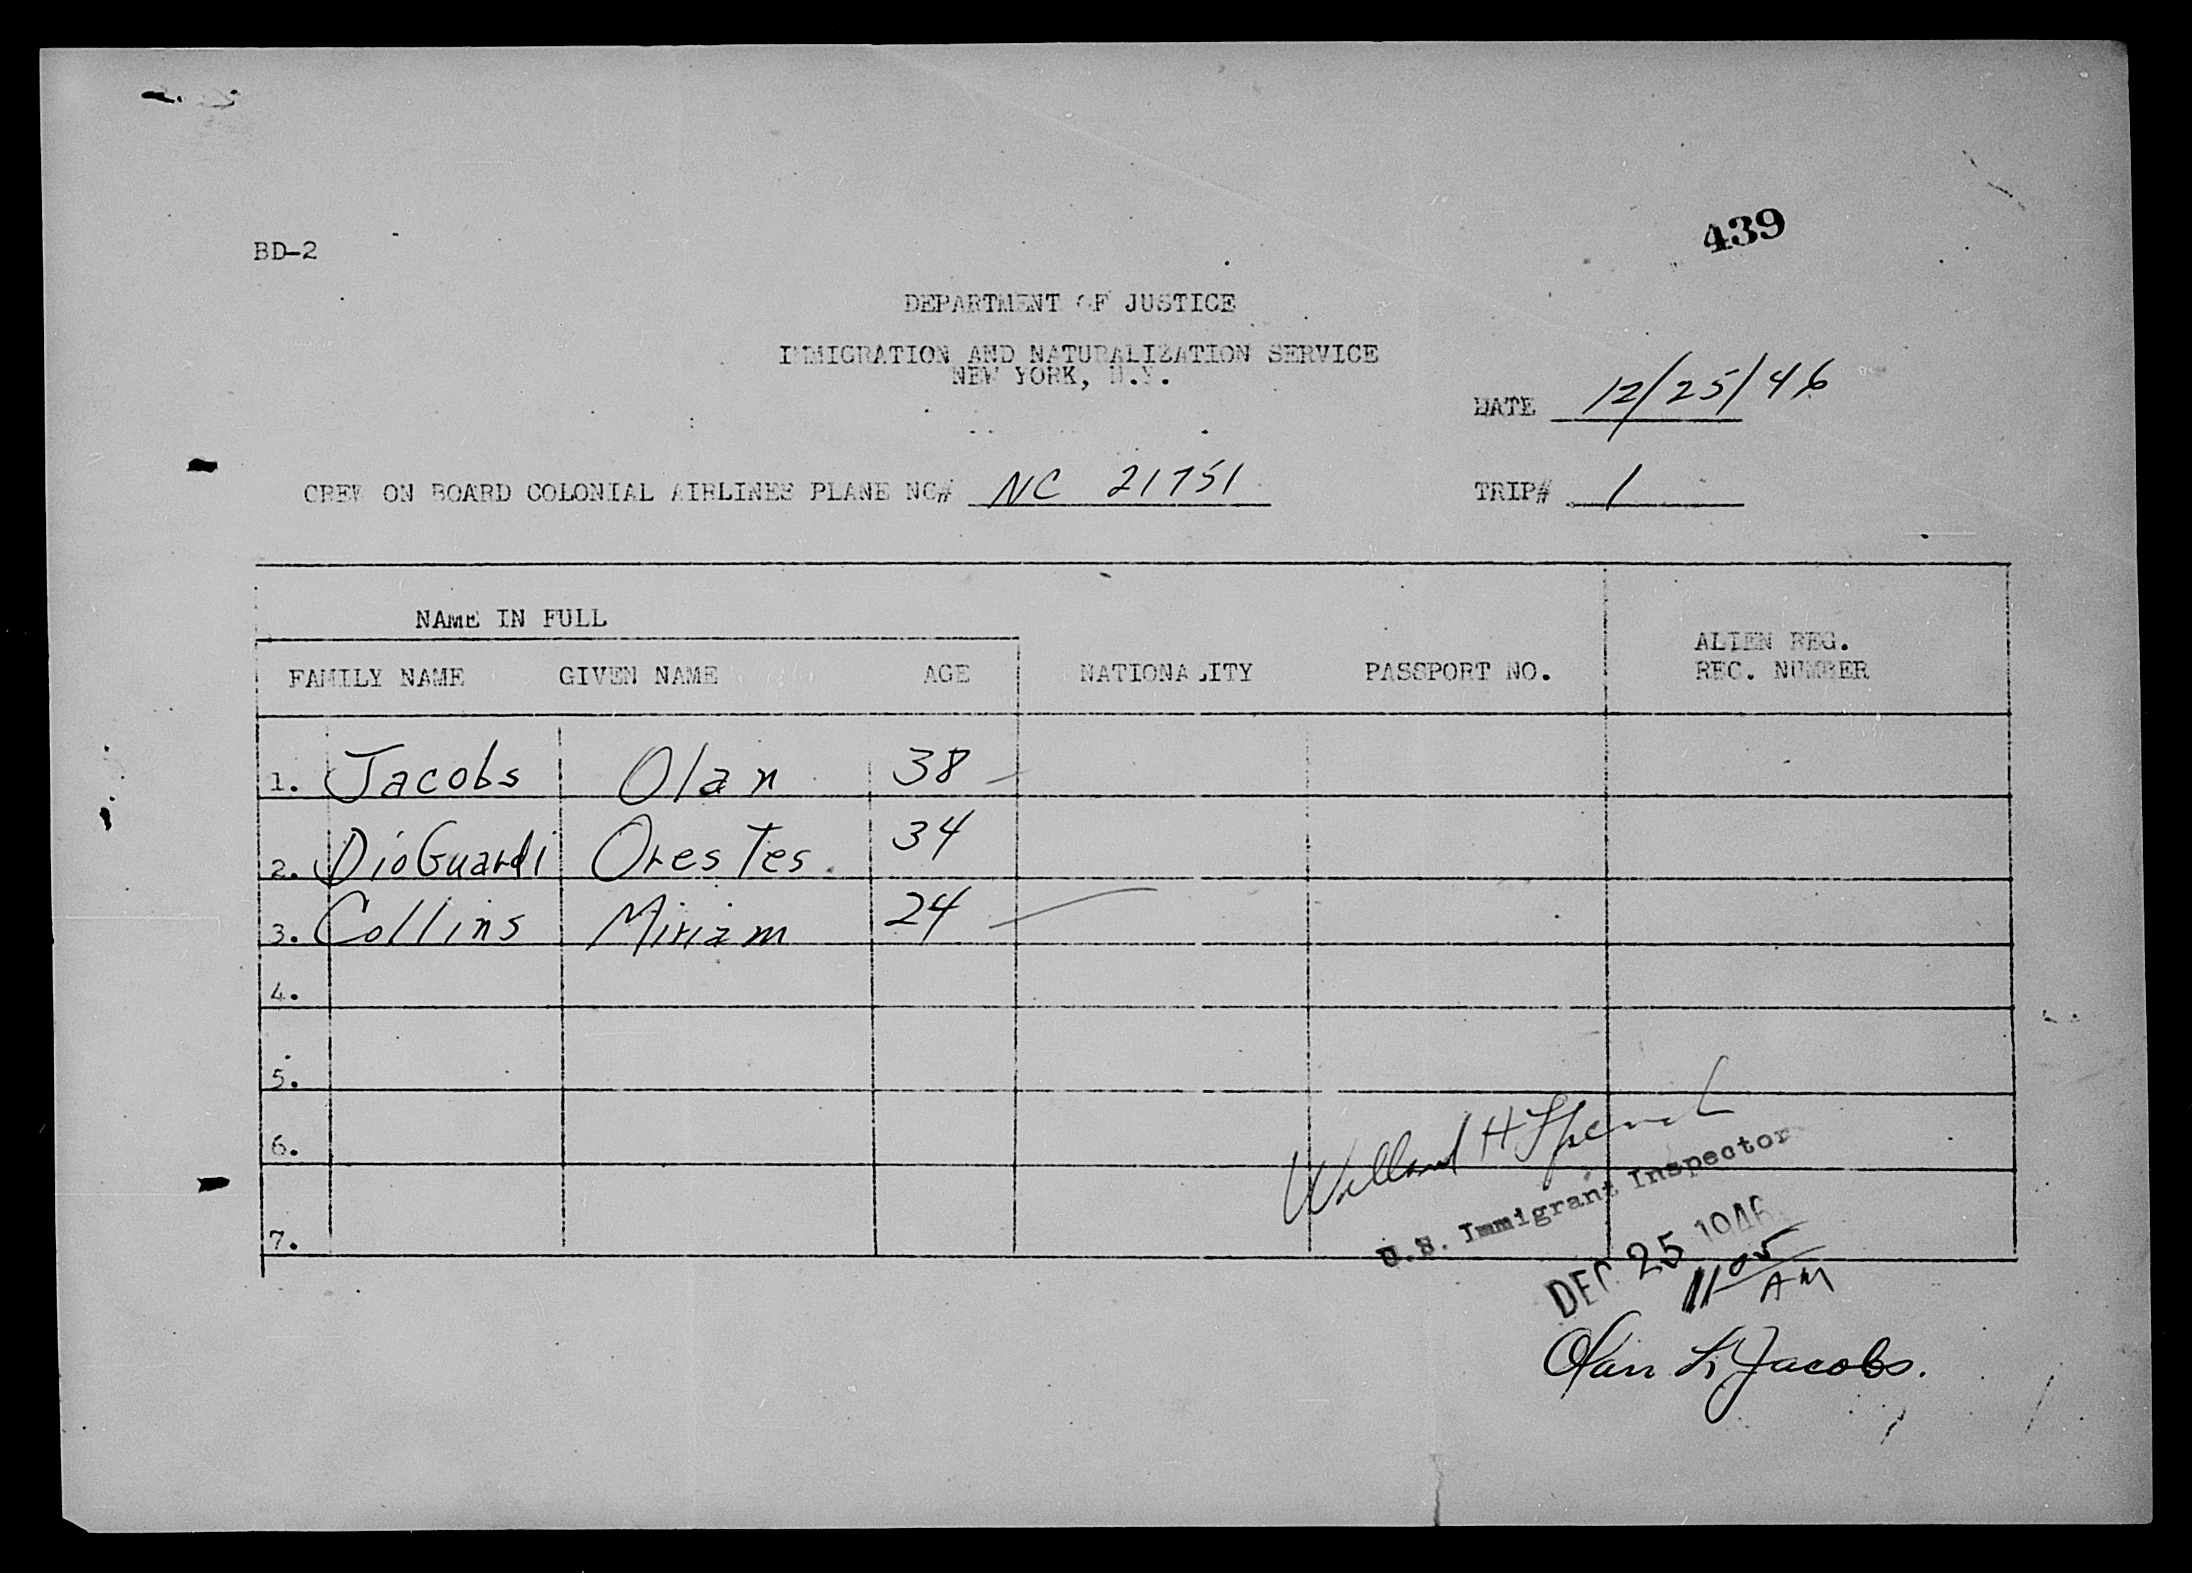 439
BD-2
DEPARTMENT OF JUSTICE
IMMIGRATION AND NATURALIZATION SERVICE
NEW YORK, N.Y.
DATE 12/25/46
CREW ON BOARD COLONIAL AIRLINES PLANE NO# NC 21751 TRIP# 1
NAME IN FULL
ALIEN REG.
FAMILY NAME GIVEN NAME AGE NATIONALITY PASSPORT NO. REC. NUMBER
1. Jacobs Olan 38
2. DioGuardi Orestes 34
3. Collins Miriam 24
4.
5.
6.
7.
Willard H
U.S. Immigrant Inspector
DEC 25 1946
11 05 AM
Olan L. Jacobs.